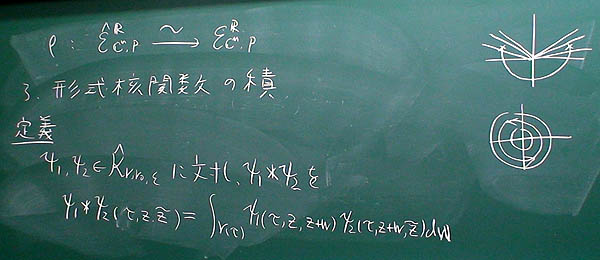 ρ : Ê^ℝ_{ℂⁿ,p} ~→ ℰ^ℝ_{ℂⁿ,p}
3. 形式核関数の積
定義
ψ₁, ψ₂ ∈ K̂_{r,r₀,ε} に対し、ψ₁*ψ₂を
ψ₁*ψ₂(τ,z,z̃) = ∫_{γ(τ)} ψ₁(τ,z,z+w) ψ₂(τ,z+w,z̃)dw